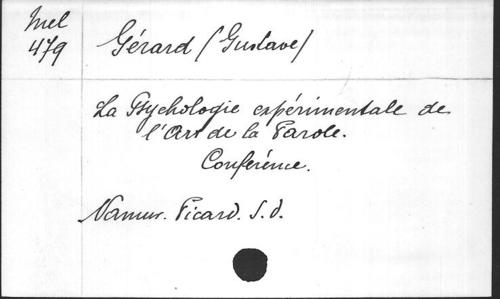 Mel
479
Gérard (Gustave)
La Psychologie expérimentale de
l'Art de la Parole.
Conférence.
Namur. Picard. S.d.